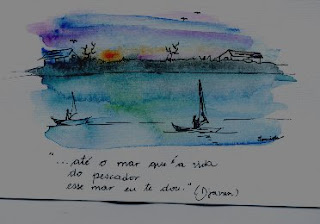 "...até o mar que é a vida
do pescador
esse mar eu te dou." (Djavan)